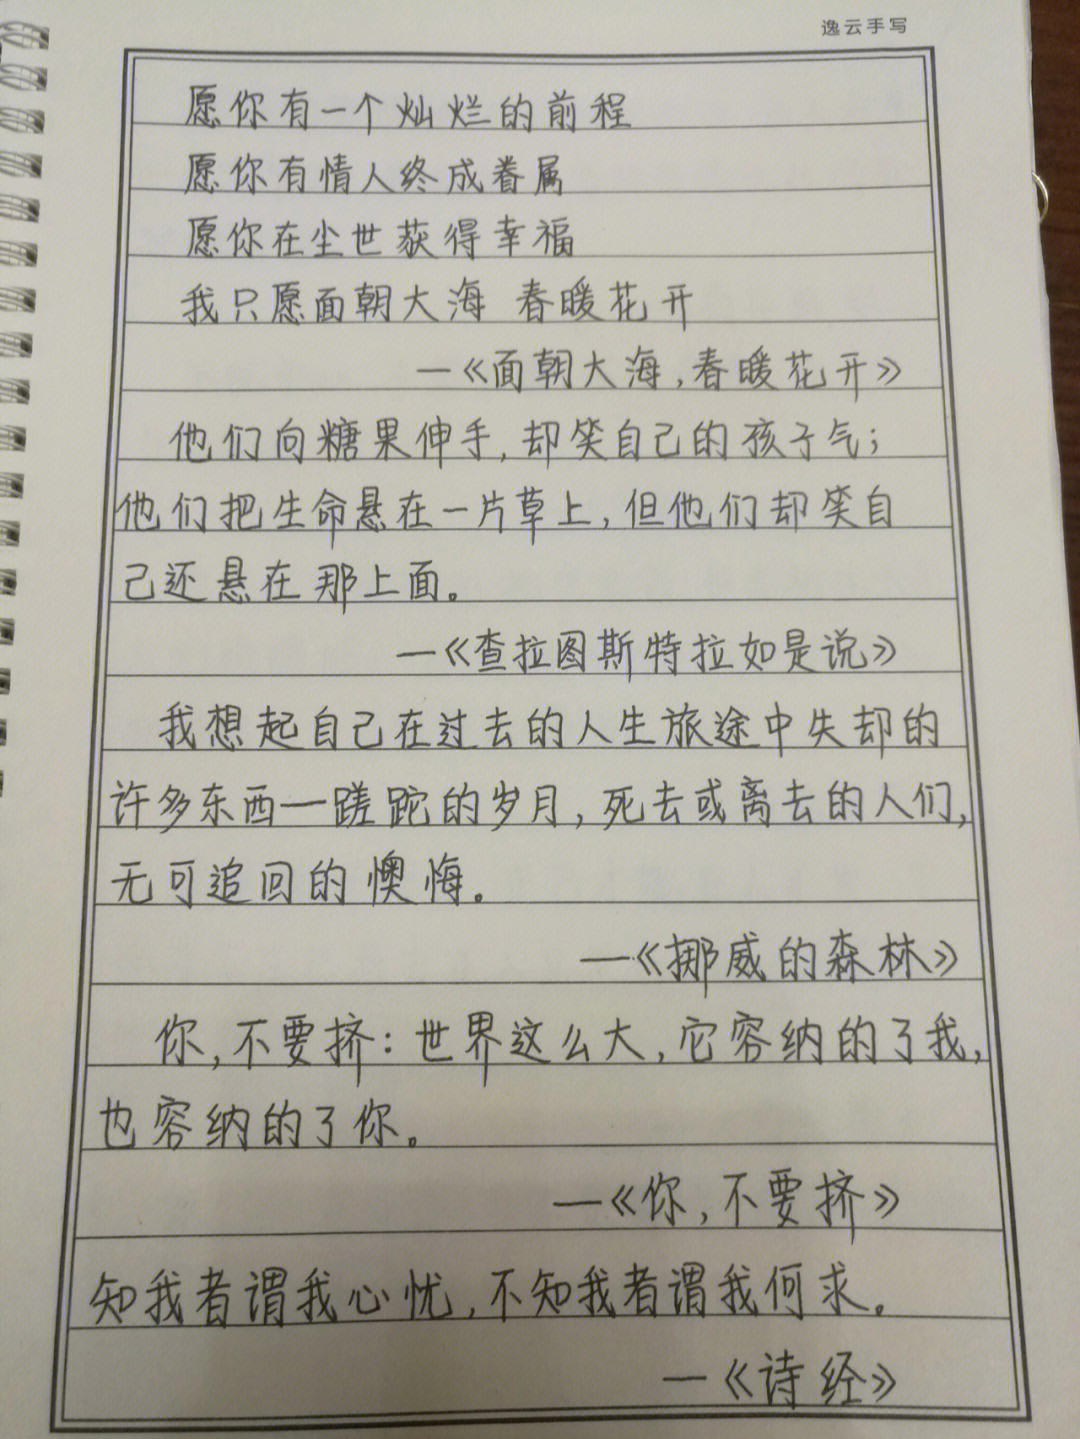 逸云手写
愿你有一个灿烂的前程
愿你有情人终成眷属
愿你在尘世获得幸福
我只愿面朝大海 春暖花开
—《面朝大海,春暖花开》
他们向糖果伸手,却笑自己的孩子气;
他们把生命悬在一片草上,但他们却笑自
己还悬在那上面。
—《查拉图斯特拉如是说》
我想起自己在过去的人生旅途中失却的
许多东西—蹉跎的岁月,死去或离去的人们,
无可追回的懊悔。
—《挪威的森林》
你,不要挤:世界这么大,它容纳的了我,
也容纳的了你。
—《你,不要挤》
知我者谓我心忧,不知我者谓我何求。
—《诗经》